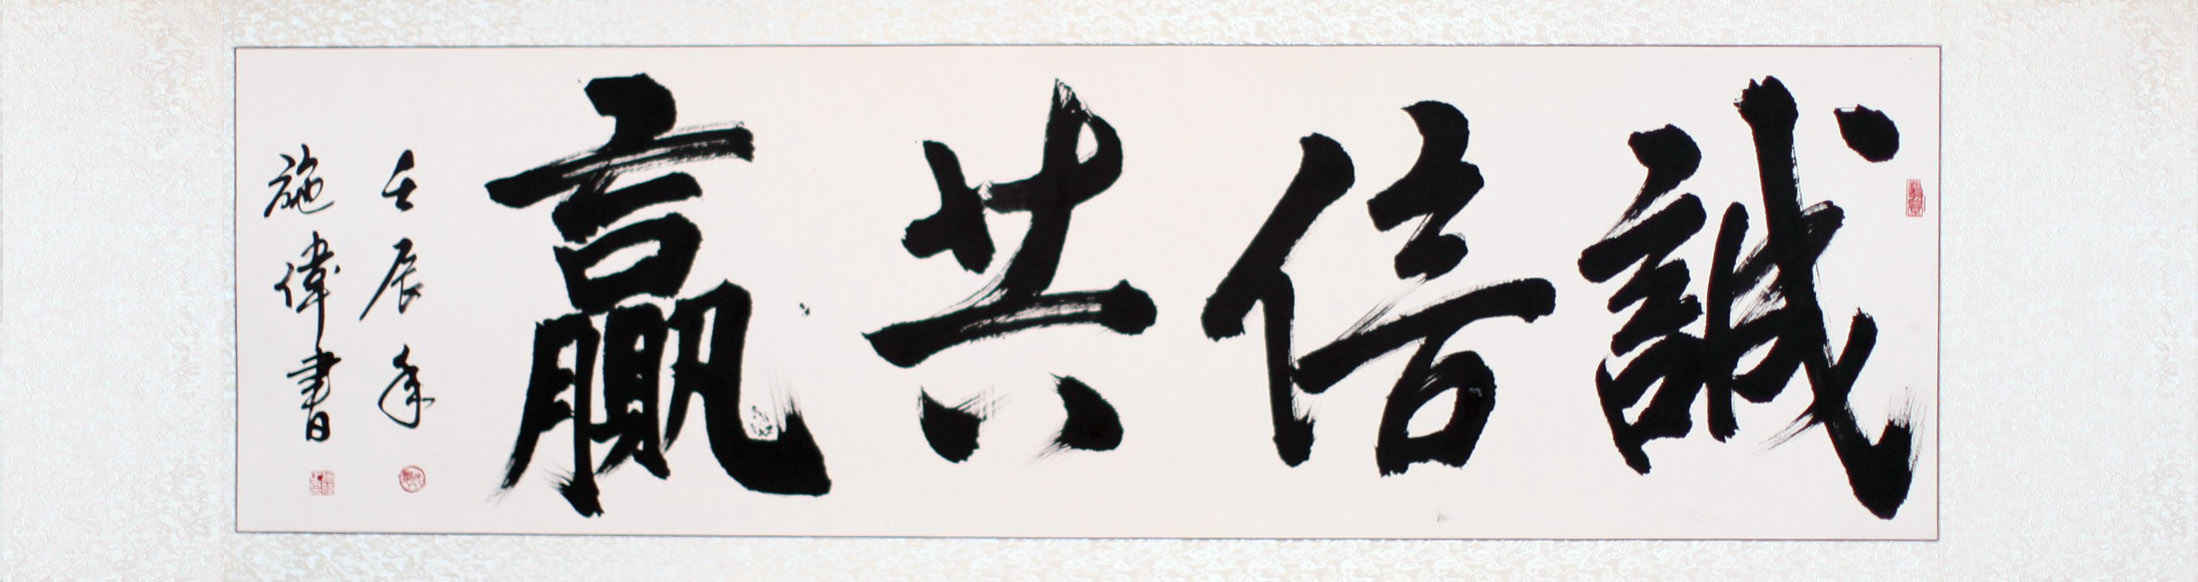 誠信共贏
壬辰年
施偉書